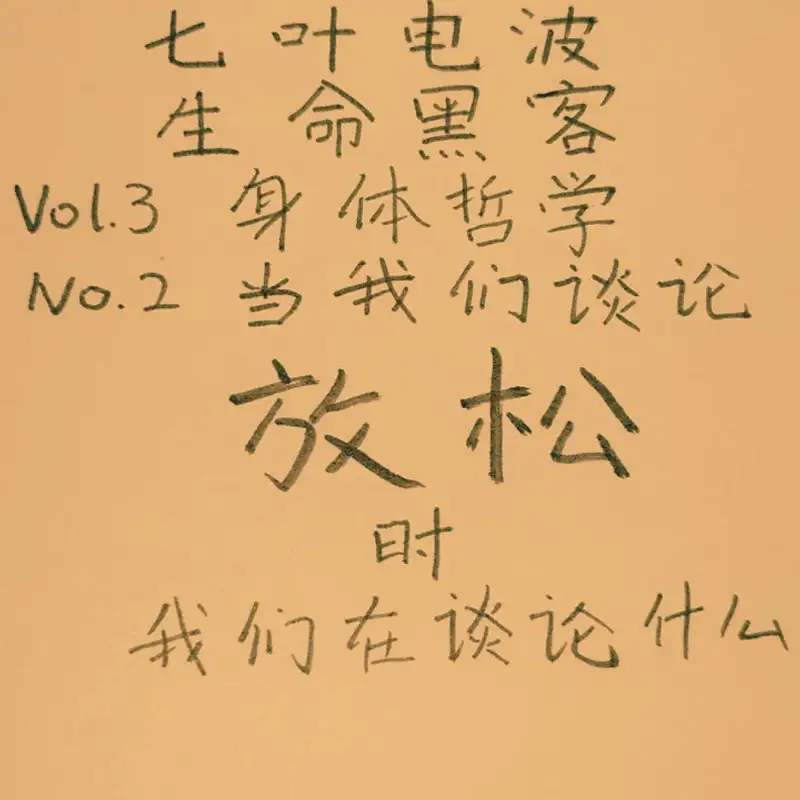 七叶电波
生命黑客
Vol.3 身体哲学
No.2 当我们谈论
放松
时
我们在谈论什么